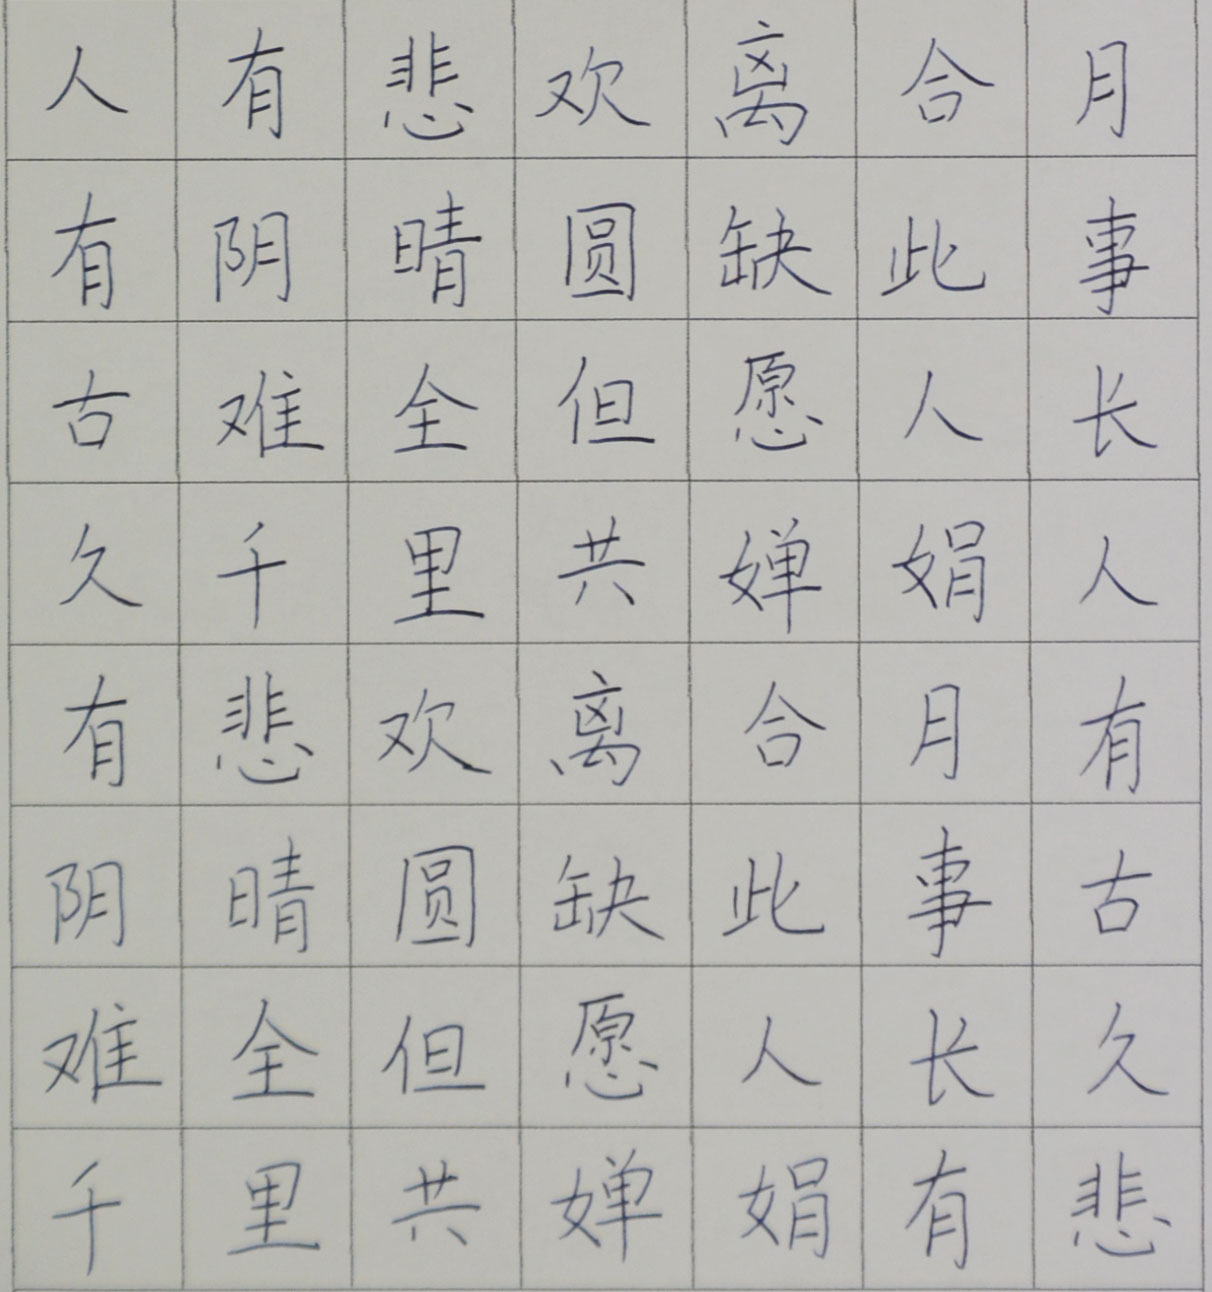 人有悲欢离合月
有阴晴圆缺此事
古难全但愿人长
久千里共婵娟人
有悲欢离合月有
阴晴圆缺此事古
难全但愿人长久
千里共婵娟有悲